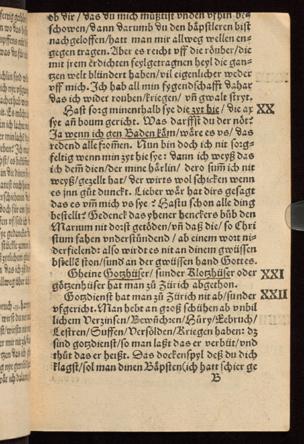 ob dir / das du mich müßist vnden vßhin be-
schowen / dann darumb du den bäpstleren bist
nachgeloffen / hatt man mir allweg wellen en-
gegen tragen. Aber es reicht vff die röuber / die
mit jrem erdichten feylgetragnen heyl die gan-
tzen welt blündert haben / vil eigenlicher weder
vff mich. Ich hab all min fygendschafft dahar
das ich wider rouben / kriegen / vñ gwalt stryt.
Hast sorg minenhalb sye die zyt hie / die ax XX
sye an boum gericht. Was darffst du der nöt?
Ja wenn ich gen Baden käm / wäre es vs / das
redend alle frommen. Nun bin doch ich nit sorg-
feltig wenn min zyt hie sye: dann ich weyß das
ich dem dien / der mune härlin / dero sum ich nit
weyß / gezellt hat / der wirts wol schicken wenn
es jnn gůt dunckt. Lieber wår hat dirs gesagt
das es vm mich vs sye? Hastu schon alle ding
bestellt? Gedenck das yhener henckers bůb den
Marium nit dorst getöden / vñ daß die / so Chri
stum fahen vnderstůndend / ab einem wort ni-
derfielend: also wirt es nit an dinem gwüssen
bsteltē ston / sund an der gwüssen hand Gottes.
Gheine Gotzhüser / sunder Klotzhüser oder XXI
götzenhüser hat man zů Zürich abgethon.
Gotzdienst hat man zů Zürich nit ab / sunder XXII
vfgericht. Man hebt an groß schühen ab vnbil
lichem Verzinsen / Bewůchren / Hůry / Eebruch /
Lestren / Suffen / Versölden / Kriegen haben: dz
sind gotzdienst / so man laßt das er verbüt / vnd
thůt das er heißt. Das dockenspyl deß du dich
klagst / sol man dinen Bäpsten (ich hart schier ge
B